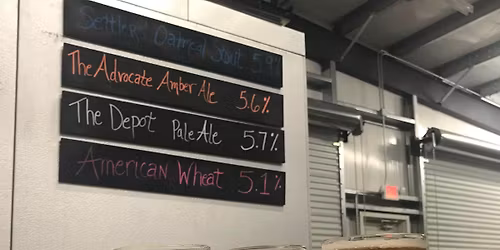 Settlers Oatmeal Stout 5.9%
The Advocate Amber Ale 5.6%
The Depot Pale Ale 5.7%
American Wheat 5.1%